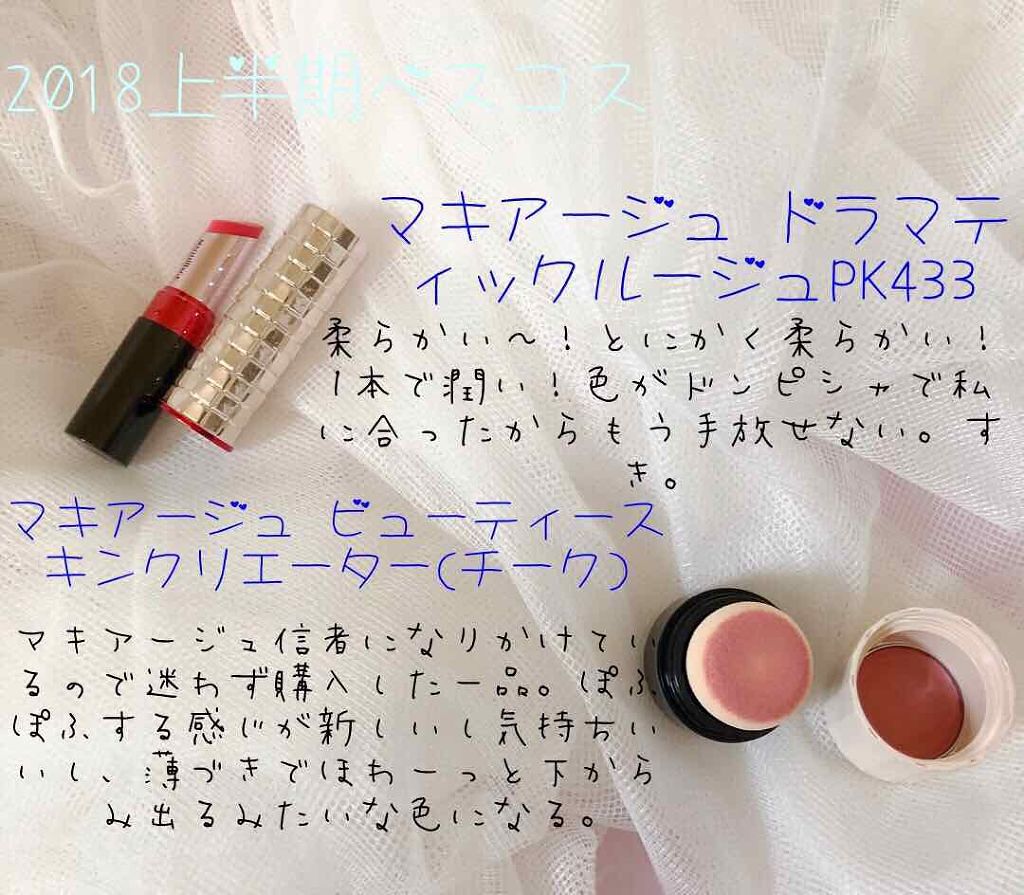 2018上半期ベスコス
マキアージュ ドラマテ
ィックルージュPK433
柔らかい～！とにかく柔らかい！
1本で潤い！色がドンピシャで私
に合ったからもう手放せない。す
き。
マキアージュ ビューティース
キンクリエーター(チーク)
マキアージュ信者になりかけてい
るので迷わず購入した一品。ぽふ
ぽふする感じが新しいし気持ちい
いし、薄づきでほわーっと下から
み出るみたいな色になる。